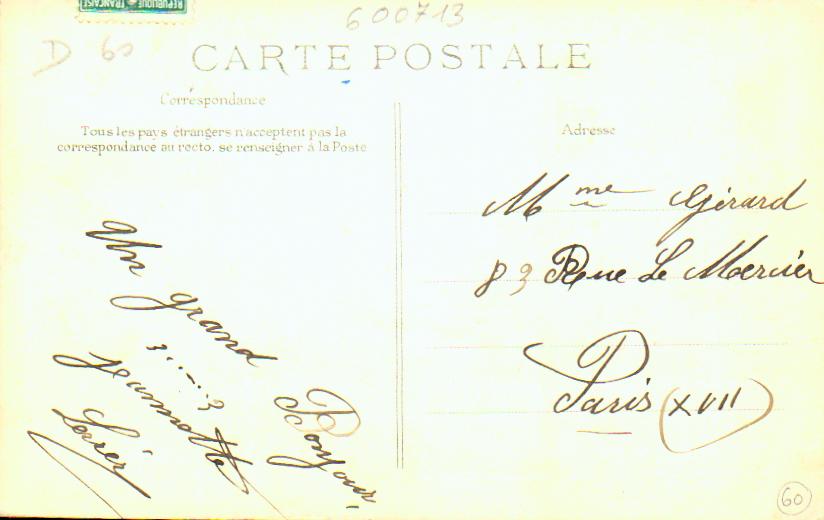 REPUBLIQUE FRANÇAISE
600713
D 60
CARTE POSTALE
Correspondance
Tous les pays étrangers n'acceptent pas la
correspondance au recto. se renseigner à la Poste
Adresse
Un grand Bonjour,
Jeannette
Mme Gérard
83 Rue Le Mercier
Paris (XVII)
60